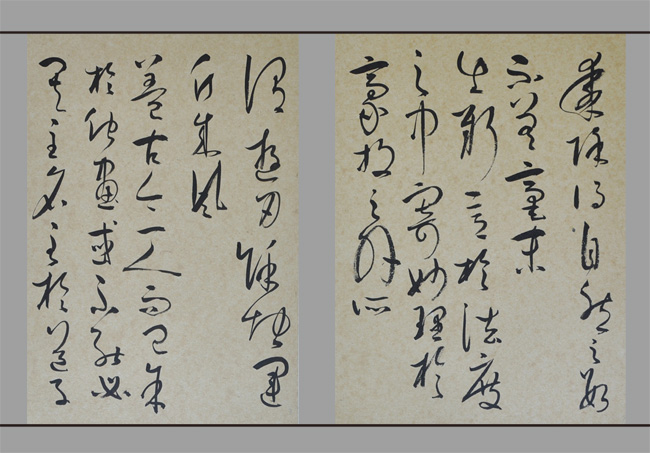 乘除得自然之數
不差毫末
出新意於法度
之中寄妙理於
豪放之外所
謂遊刃餘地運
斤成風
蓋古今一人而已余
於他畫或不能必
其主名至於道子